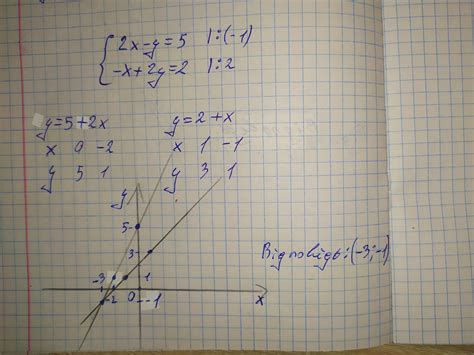 {2x-y=5 |:(-1)
-x+2y=2 |:2
y=5+2x
x 0 -2
y 5 1
y=2+x
x 1 -1
y 3 1
y
5
3
-3 1
-2 0 -1 x
Відповідь: (-3;-1)